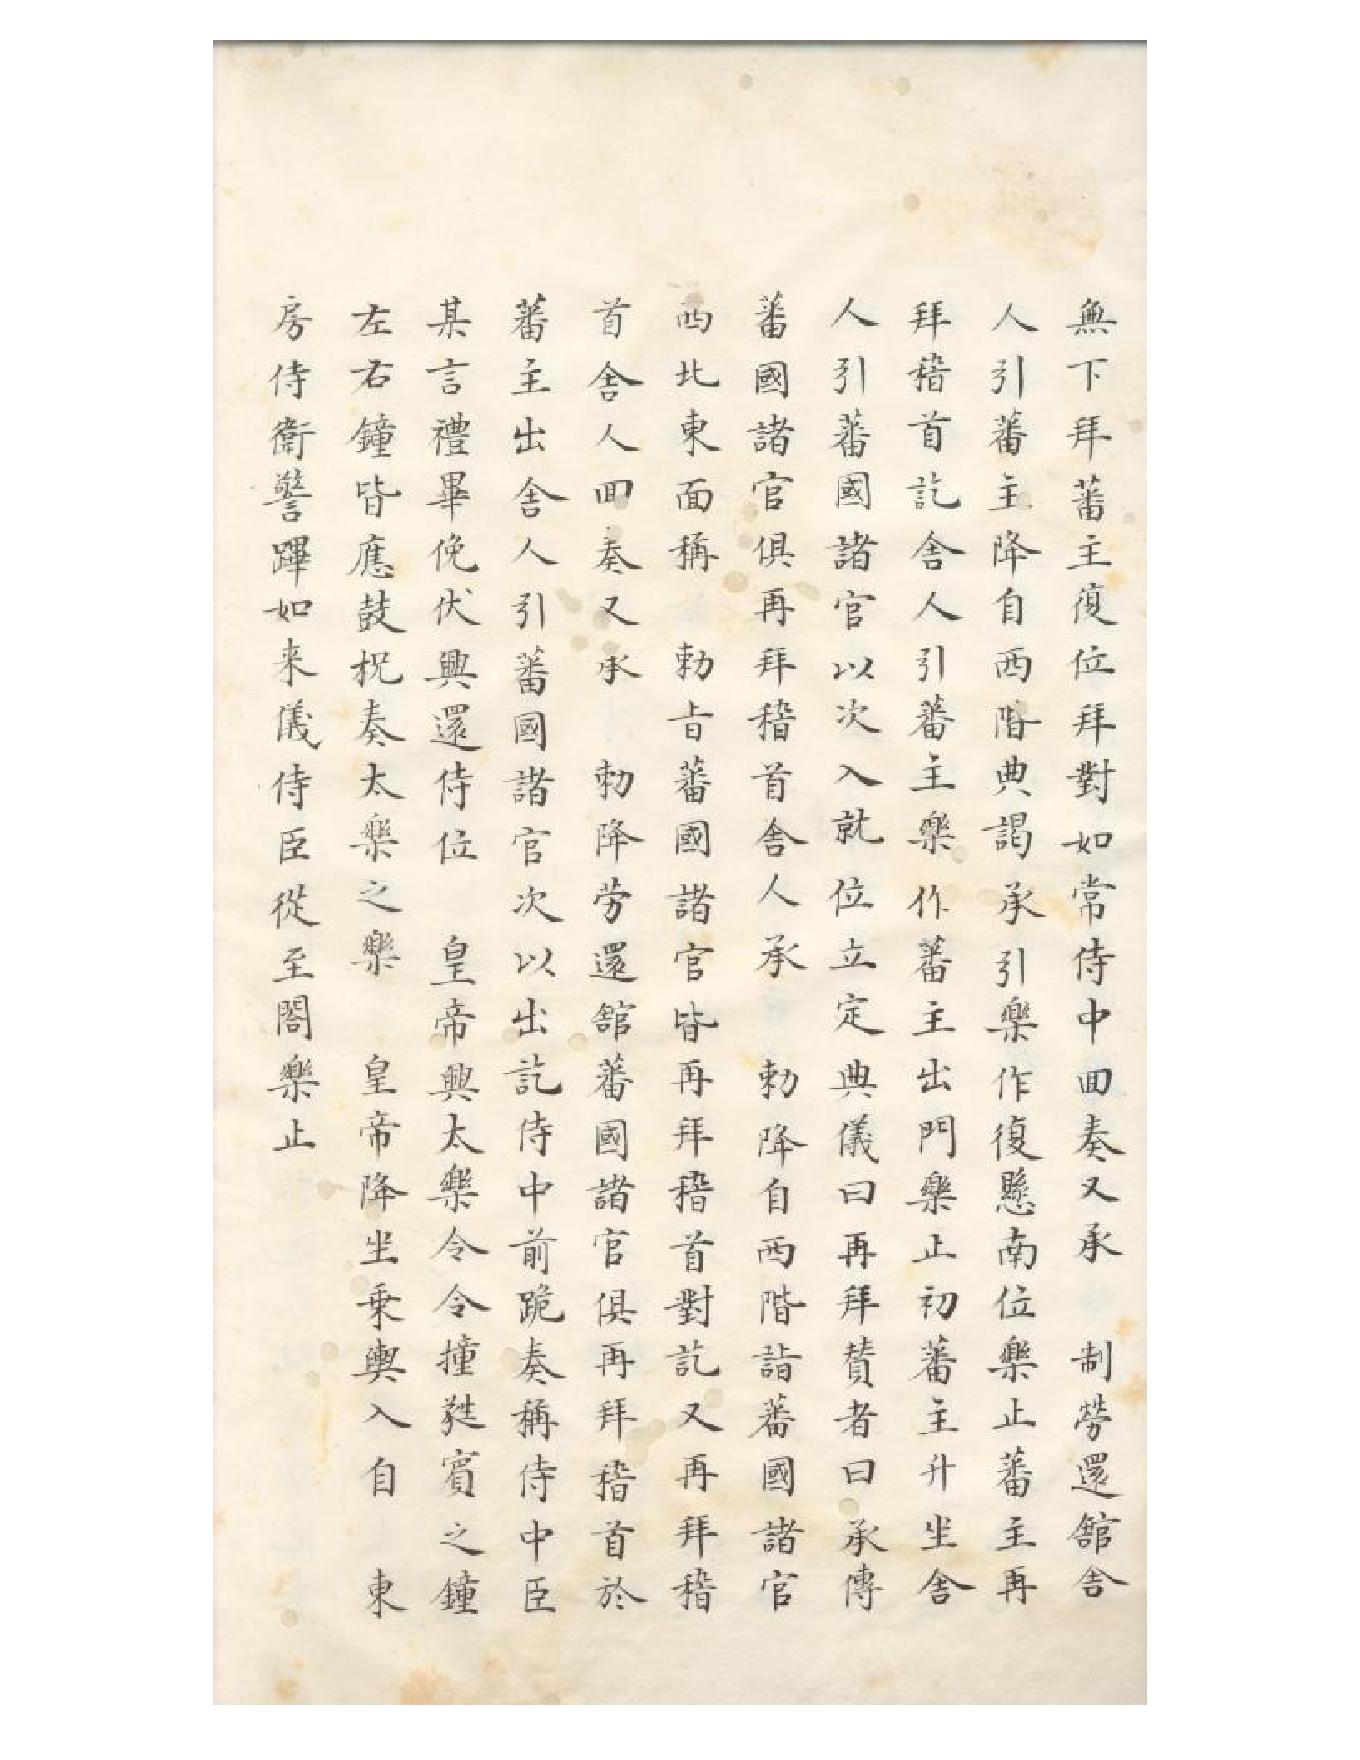 無下拜蕃主復位拜對如常侍中回奏又承　制勞還舘舍
人引蕃主降自西階典謁承引樂作復懸南位樂止蕃主再
拜稽首訖舍人引蕃主樂作蕃主出門樂止初蕃主升坐舍
人引蕃國諸官以次入就位立定典儀曰再拜賛者曰承傳
蕃國諸官俱再拜稽首舍人承　勅降自西階詣蕃國諸官
西北東面稱　勅旨蕃國諸官皆再拜稽首對訖又再拜稽
首舍人回奏又承　勅降勞還舘蕃國諸官俱再拜稽首於
蕃主出舍人引蕃國諸官次以出訖侍中前跪奏稱侍中臣
某言禮畢俛伏興還侍位　皇帝興太樂令令撞蕤賓之鐘
左右鐘皆應鼓柷奏太樂之樂　皇帝降坐乗輿入自　東
房侍衛警蹕如来儀侍臣從至閤樂止